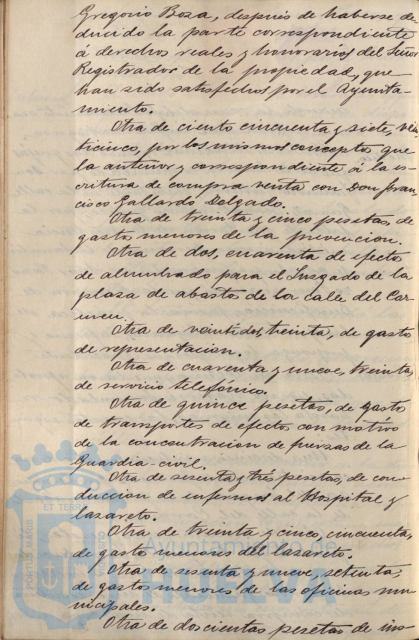 Gregorio Boza, después de haberse de
ducido la parte correspondiente
á derechos reales y honorarios del Señor
Registrador de la propiedad, que
han sido satisfechos por el Ayunta-
miento.
Otra de ciento cincuenta y siete, vein
ticinco, por los mismos conceptos que
la anterior y correspondiente á la es-
critura de compra venta con Don Fran
cisco Gallardo Delgado.
Otra de treinta y cinco pesetas, de
gastos menores de la prevencion.
Otra de dos, cuarenta de efectos
de alumbrado para el Juzgado de la
plaza de abastos de la calle del Car-
men.
Otra de veintidos, treinta, de gastos
de representacion.
Otra de cuarenta y nueve, treinta,
de servicio telefónico.
Otra de quince pesetas, de gastos
de transportes de efectos con motivo
de la concentracion de fuerzas de la
Guardia-civil.
Otra de sesenta y tres pesetas, de con-
duccion de enfermos al Hospital y
lazareto.
Otra de treinta y cinco, cincuenta,
de gastos menores del lazareto.
Otra de sesenta y nueve, setenta,
de gastos menores de las oficinas mu
nicipales.
Otra de doscientas pesetas de ins-
PORTUS MARIS
ET TERRAE
Ayuntamiento de
HUELVA